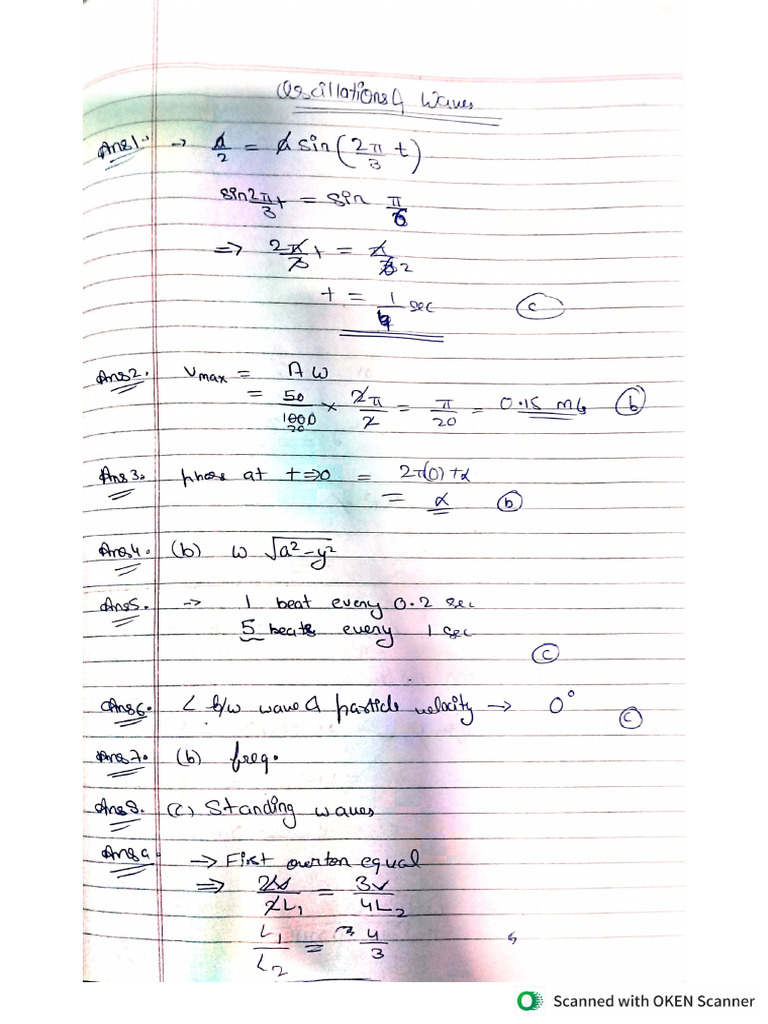 Oscillations & Waves
Ans1. → A/2 = A sin(2π/3 t)
sin 2π/3 t = sin π/6
⇒ 2π/3 t = π/6 2
t = 1/4 sec (c)
Ans2. Vmax = Aω
= 50/1000 20 × 2π/2 = π/20 = 0.15 m/s (b)
Ans3. phase at t⇒0 = 2π(0)+α
= α (b)
Ans4. (b) ω √a²-y²
Ans5. → 1 beat every 0.2 sec
5 beats every 1 sec
(c)
Ans6. ∠ b/w wave & particle velocity → 0° (c)
Ans7. (b) freq.
Ans8. (c) Standing waves
Ans9 → First overton equal
⇒ 2V/2L₁ = 3V/4L₂
L₁/L₂ = 4/3
Scanned with OKEN Scanner